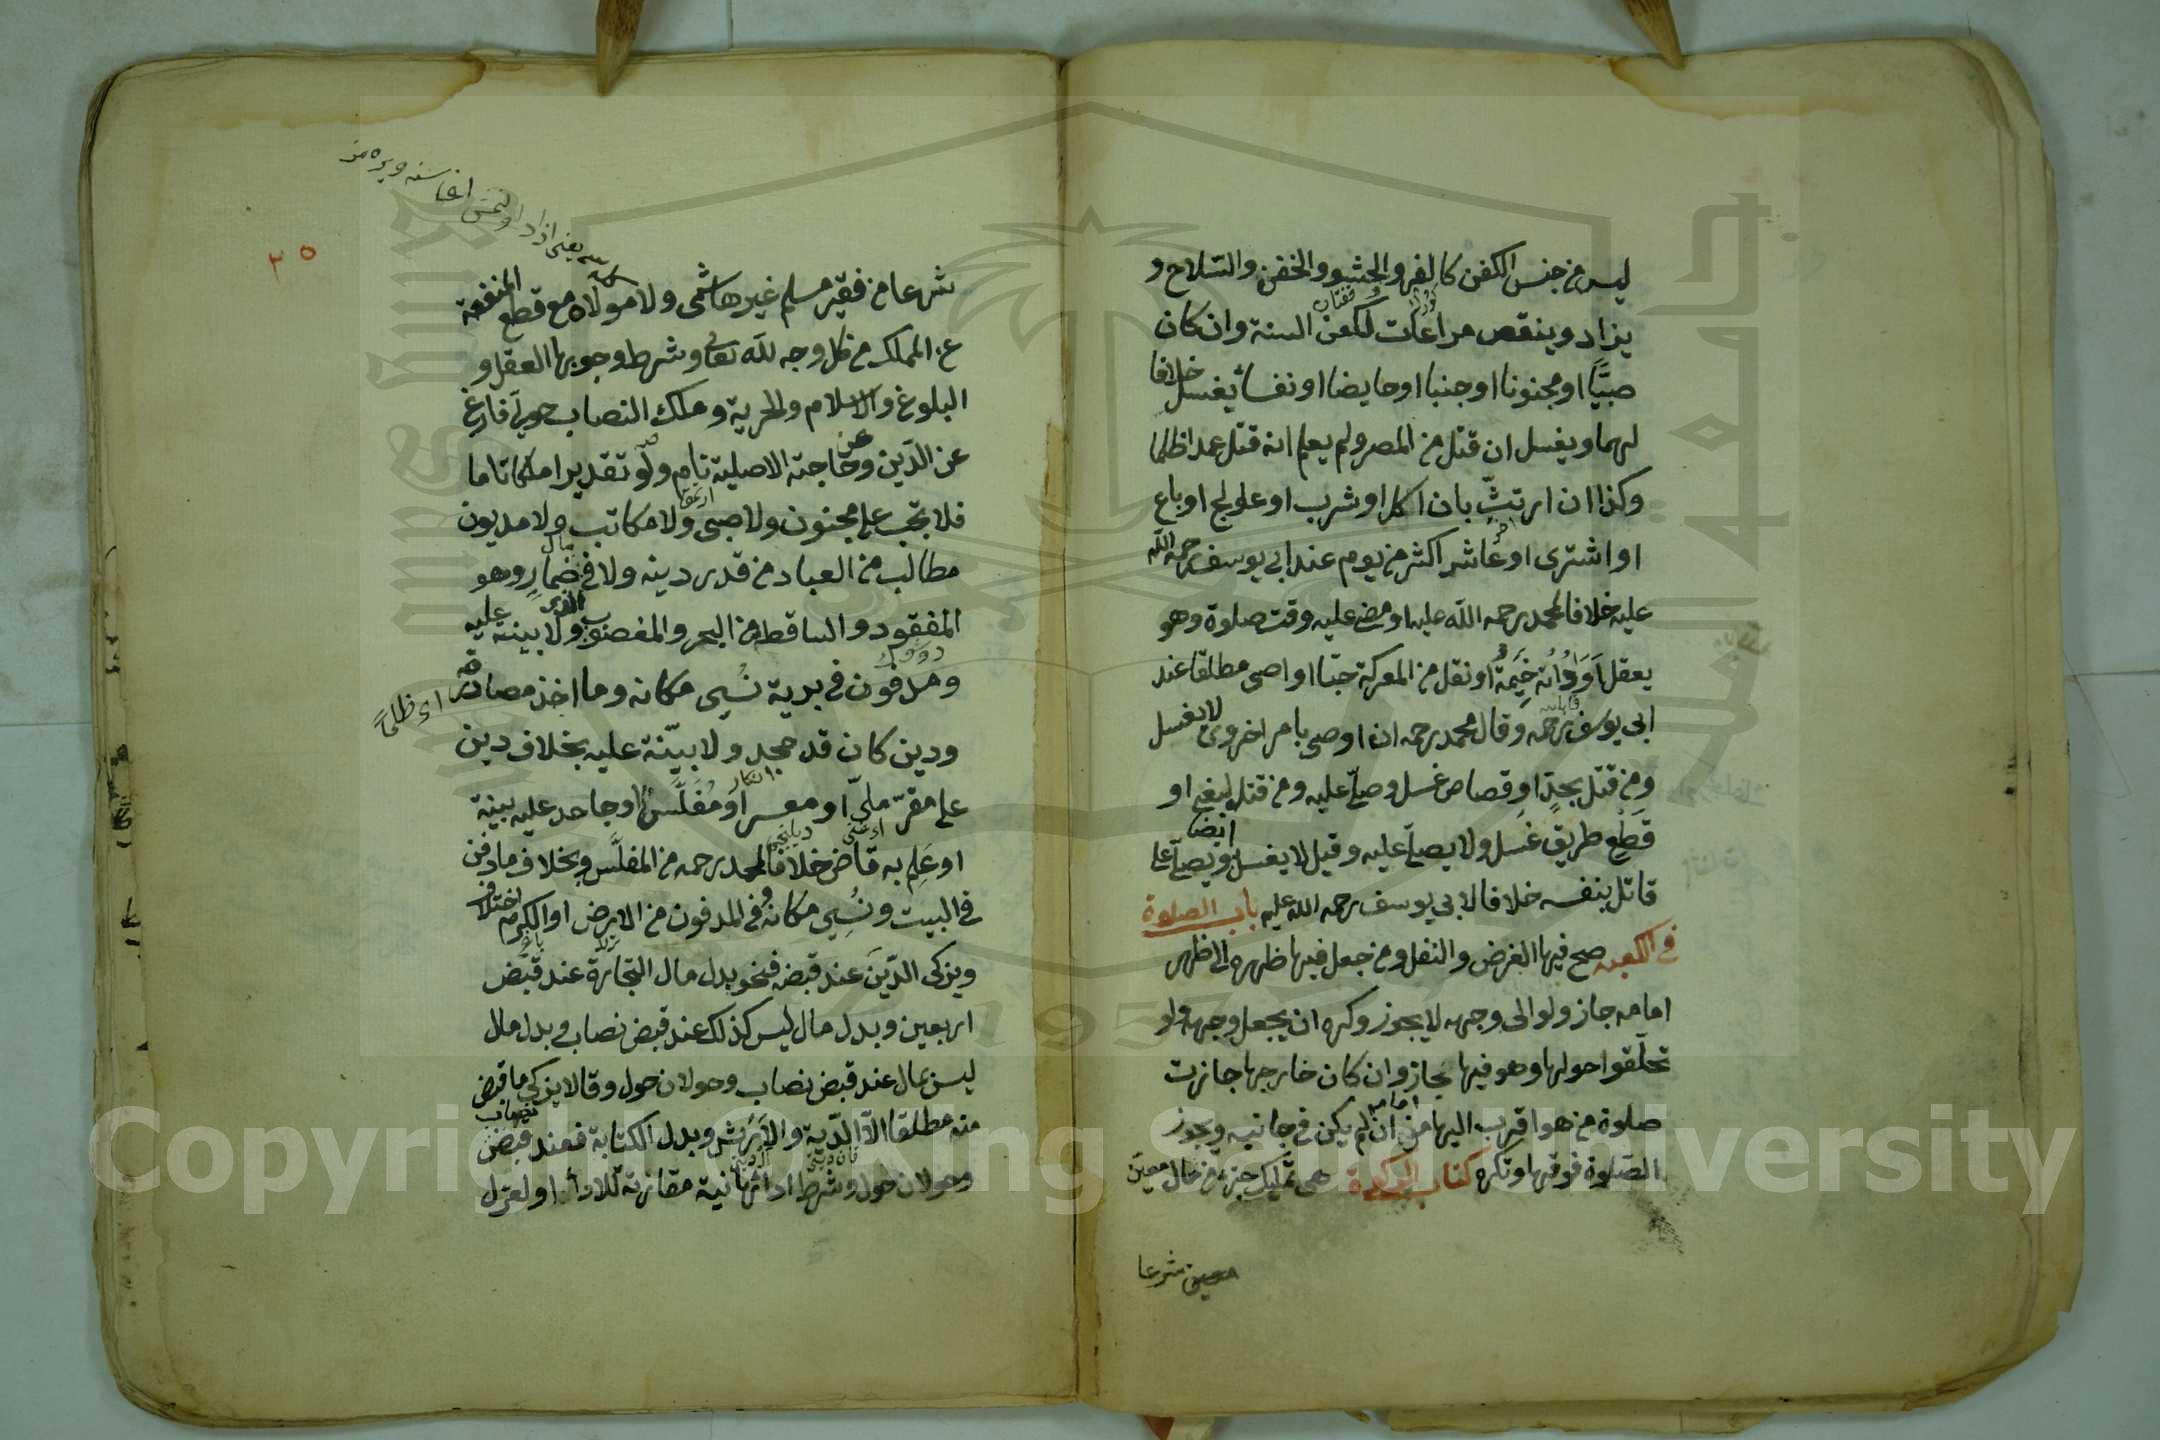 ليس من جنس الكفن كالفرو والحشو والخف والسلاح و
يزاد وينقص مراعات لكفن السنة وان كان
صبيًّا او مجنونا او جنبا او حايضا او نفساء يغسل خلافا
لهما ويغسل ان قتل من المصر ولم يعلم انه قتل عمدا ظلما
وكذا ان ارتثّ بان اكل او شرب او عولج او باع
او اشترى او عاش اكثر من يوم عند ابى يوسف رحمة الله
عليه خلافا لمحمد رحمه الله عليه او مضى عليه وقت صلوة وهو
يعقل او اوته خيمة او نقل من المعركة حيّا او اوصى مطلقا عند
ابى يوسف رحمه وقال محمد رحمه ان اوصى بامر اخروى لا يغسل
ومن قتل بحدّ او قصاص غسل وصلّى عليه ومن قتل لبغى او
قطع طريق غسل ولا يصلّى عليه وقيل لا يغسل ايضا ويصلّى على
قاتل بنفسه خلافا لابى يوسف رحمه الله عليه باب الصلوة
فى الكعبه صح فيها الفرض والنفل ومن جعل فيها ظهره الى ظهر
امامه جاز ولو الى وجهه لا يجوز وكره ان يجعل وجهه ولو
تحلّقوا حولها وهو فيها جاز وان كان خارجها جازت
صلوة من هو اقرب اليها من امامه ان لم يكن فى جانبه ويجوز
الصّلوة فوقها وتكره كتاب الزكوة هى تمليك جزء من مال معيّن
معين شرعا
٣٥
شرعا من فقير مسلم غير هاشمى ولا مولاه مع قطع المنفعة
عن المملك من كل وجه لله تعالى وشرط وجوبها العقل و
البلوغ والاسلام والحرية وملك النصاب حولى فارغ
عن الدّين وعن حاجته الاصلية نام ولو تقديرا ملكا تاما
فلا تجب على مجنون ولا صبى ولا مكاتب ولا مديون
مطالب من العباد من قدر دينه ولا فى مال ضمار وهو
المفقود والساقط من البحر والمغصوب الذى لا بينة عليه
ومدفون فى برية نُسِى مكانه وما اخذ مصادرة
اى ظلماً
ودين كان قد جحد ولا بيّنة عليه بخلاف دين
على مقرّ ملىّ او معسر او مفلّس او جاحد عليه بينة
او عَلِم به قاض خلافا لمحمد رحمه من المفلَّس وبخلاف ما دفن
فى البيت ونُسِى مكانه وفى المدفون من الارض او الكرم اختلاف
ويزكى الدّين عند قبضه فنحو بدل مال التجارة عند قبض
اربعين وبدل مال ليس كذلك عند قبض نصاب وبدل مال
ليس بمال عند قبض نصاب وحولان حول وقالا يزكى ما قبض
منه مطلقا الاّ الدّية والارش وبدل الكتابة فعند قبض نصاب
وحولان حول وشرط ادائها نية مقارنة للاداء او لعزل